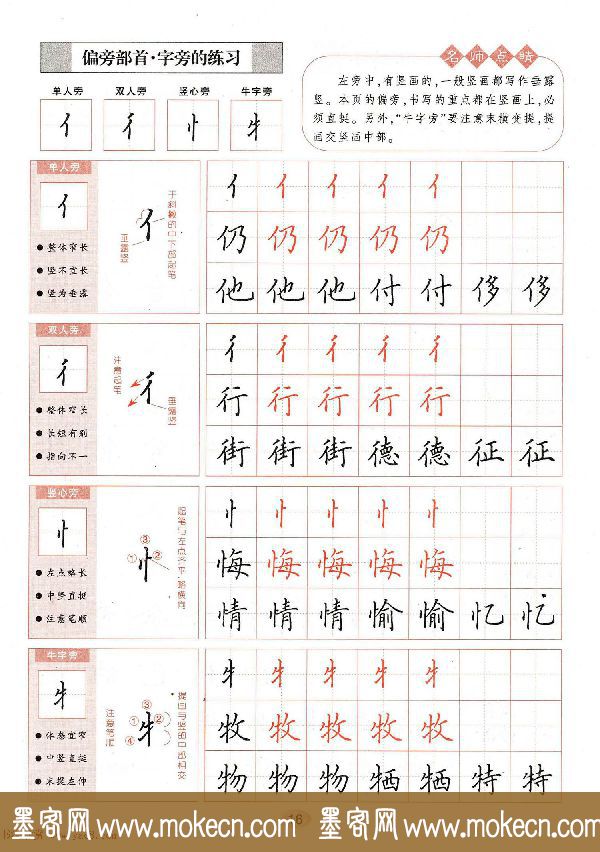 偏旁部首·字旁的练习
单人旁 双人旁 竖心旁 牛字旁
亻 彳 忄 牜
名师点睛
左旁中,有竖画的,一般竖画都写作垂露
竖。本页的偏旁,书写的重点都在竖画上,必
须直挺。另外,“牛字旁”要注意末横变提,提
画交竖画中部。
单人旁
亻
整体窄长
竖不宜长
竖为垂露
于斜撇的中下部起笔
垂露竖
亻 亻 亻 亻 亻
仍 仍 仍 仍 仍
他 他 他 付 付 侈 侈
双人旁
彳
整体窄长
长短有别
指向不一
注意起笔
垂露竖
彳 彳 彳 彳 彳
行 行 行 行 行
街 街 街 德 德 征 征
竖心旁
忄
左点略长
中竖直挺
注意笔顺
①
③
②
忄 忄 忄 忄 忄
悔 悔 悔 悔 悔
情 情 情 愉 愉 忆 忆
牛字旁
牜
体态宜窄
中竖直挺
末提左伸
注意笔顺
①
③
②
④
提画与竖的中部相交
牜 牜 牜 牜 牜
牧 牧 牧 牧 牧
物 物 物 牺 牺 特 特
16
墨客网 www.mokecn.com 墨客网 www.mokecn.com